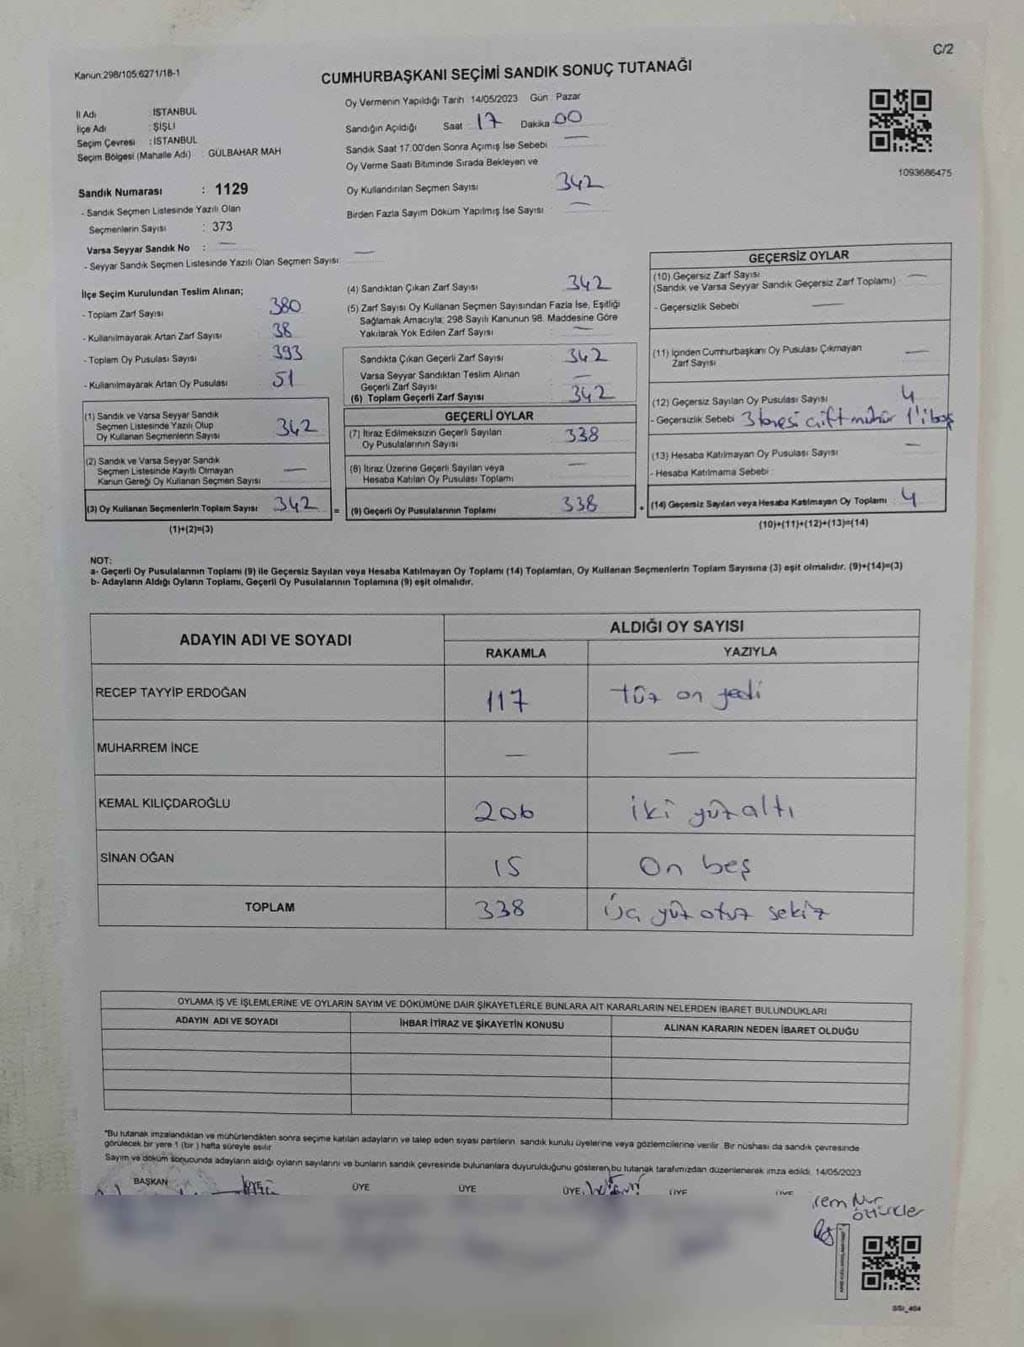 C/2
Kanun:298/105:6271/18-1
CUMHURBAŞKANI SEÇİMİ SANDIK SONUÇ TUTANAĞI
İl Adı : İSTANBUL
İlçe Adı : ŞİŞLİ
Seçim Çevresi : İSTANBUL
Seçim Bölgesi (Mahalle Adı) : GÜLBAHAR MAH
Sandık Numarası : 1129
- Sandık Seçmen Listesinde Yazılı Olan
Seçmenlerin Sayısı : 373
Varsa Seyyar Sandık No : —
- Seyyar Sandık Seçmen Listesinde Yazılı Olan Seçmen Sayısı: —
Oy Vermenin Yapıldığı Tarih 14/05/2023 Gün : Pazar
Sandığın Açıldığı Saat 17 Dakika 00
Sandık Saat 17.00'den Sonra Açımış İse Sebebi —
Oy Verme Saati Bitiminde Sırada Bekleyen ve
Oy Kullandırılan Seçmen Sayısı 342
Birden Fazla Sayım Döküm Yapılmış İse Sayısı —
1093686475
İlçe Seçim Kurulundan Teslim Alınan;
- Toplam Zarf Sayısı 380
- Kullanılmayarak Artan Zarf Sayısı 38
- Toplam Oy Pusulası Sayısı 393
- Kullanılmayarak Artan Oy Pusulası 51
(1) Sandık ve Varsa Seyyar Sandık
Seçmen Listesinde Yazılı Olup
Oy Kullanan Seçmenlerin Sayısı 342
(2) Sandık ve Varsa Seyyar Sandık
Seçmen Listesinde Kayıtlı Olmayan
Kanun Gereği Oy Kullanan Seçmen Sayısı —
(3) Oy Kullanan Seçmenlerin Toplam Sayısı 342
(1)+(2)=(3)
(4) Sandıktan Çıkan Zarf Sayısı 342
(5) Zarf Sayısı Oy Kullanan Seçmen Sayısından Fazla İse, Eşitliği
Sağlamak Amacıyla; 298 Sayılı Kanunun 98. Maddesine Göre
Yakılarak Yok Edilen Zarf Sayısı —
Sandıkta Çıkan Geçerli Zarf Sayısı 342
Varsa Seyyar Sandıktan Teslim Alınan
Geçerli Zarf Sayısı —
(6) Toplam Geçerli Zarf Sayısı 342
GEÇERLİ OYLAR
(7) İtiraz Edilmeksizin Geçerli Sayılan
Oy Pusulalarının Sayısı 338
(8) İtiraz Üzerine Geçerli Sayılan veya
Hesaba Katılan Oy Pusulası Toplamı —
= (9) Geçerli Oy Pusulalarının Toplamı 338
GEÇERSİZ OYLAR
(10) Geçersiz Zarf Sayısı
(Sandık ve Varsa Seyyar Sandık Geçersiz Zarf Toplamı) —
- Geçersizlik Sebebi —
(11) İçinden Cumhurbaşkanı Oy Pusulası Çıkmayan
Zarf Sayısı —
(12) Geçersiz Sayılan Oy Pusulası Sayısı 4
- Geçersizlik Sebebi 3 tanesi çift mühür 1'i boş
(13) Hesaba Katılmayan Oy Pusulası Sayısı —
- Hesaba Katılmama Sebebi
+ (14) Geçersiz Sayılan veya Hesaba Katılmayan Oy Toplamı 4
(10)+(11)+(12)+(13)=(14)
NOT:
a- Geçerli Oy Pusulalarının Toplamı (9) ile Geçersiz Sayılan veya Hesaba Katılmayan Oy Toplamı (14) Toplamları, Oy Kullanan Seçmenlerin Toplam Sayısına (3) eşit olmalıdır. (9)+(14)=(3)
b- Adayların Aldığı Oyların Toplamı, Geçerli Oy Pusulalarının Toplamına (9) eşit olmalıdır.
ADAYIN ADI VE SOYADI ALDIĞI OY SAYISI
RAKAMLA YAZIYLA
RECEP TAYYİP ERDOĞAN 117 Yüz on yedi
MUHARREM İNCE — —
KEMAL KILIÇDAROĞLU 206 iki yüz altı
SİNAN OĞAN 15 On beş
TOPLAM 338 Üç yüz otuz sekiz
OYLAMA İŞ VE İŞLEMLERİNE VE OYLARIN SAYIM VE DÖKÜMÜNE DAİR ŞİKAYETLERLE BUNLARA AİT KARARLARIN NELERDEN İBARET BULUNDUKLARI
ADAYIN ADI VE SOYADI İHBAR İTİRAZ VE ŞİKAYETİN KONUSU ALINAN KARARIN NEDEN İBARET OLDUĞU
*Bu tutanak imzalandıktan ve mühürlendikten sonra seçime katılan adayların ve talep eden siyasi partilerin sandık kurulu üyelerine veya gözlemcilerine verilir. Bir nüshası da sandık çevresinde
görülecek bir yere 1 (bir) hafta süreyle asılır.
Sayım ve döküm sonucunda adayların aldığı oyların sayılarını ve bunların sandık çevresinde bulunanlara duyurulduğunu gösteren bu tutanak tarafımızdan düzenlenerek imza edildi. 14/05/2023
BAŞKAN ÜYE ÜYE ÜYE ÜYE ÜYE
irem Nur
öztürkler